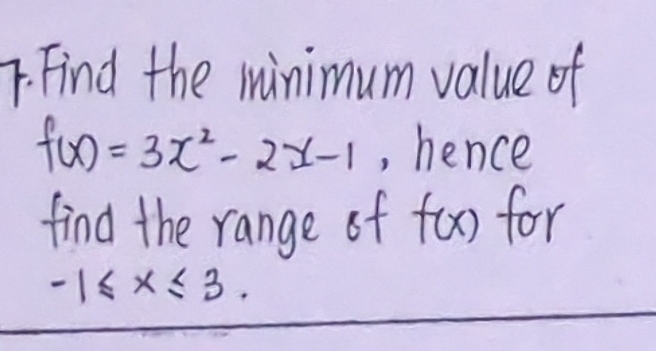 7. Find the minimum value of
f(x) = 3x² - 2x - 1, hence
find the range of f(x) for
-1 ≤ x ≤ 3.